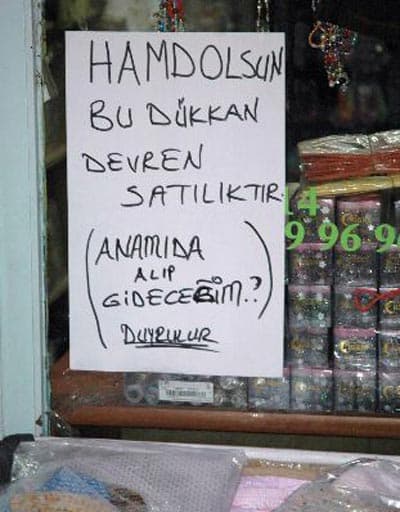 HAMDOLSUN
BU DÜKKAN
DEVREN
SATILIKTIR.
(ANAMIDA
ALIP
GİDECEĞİM.?)
DUYRULUR
14
9 96 9